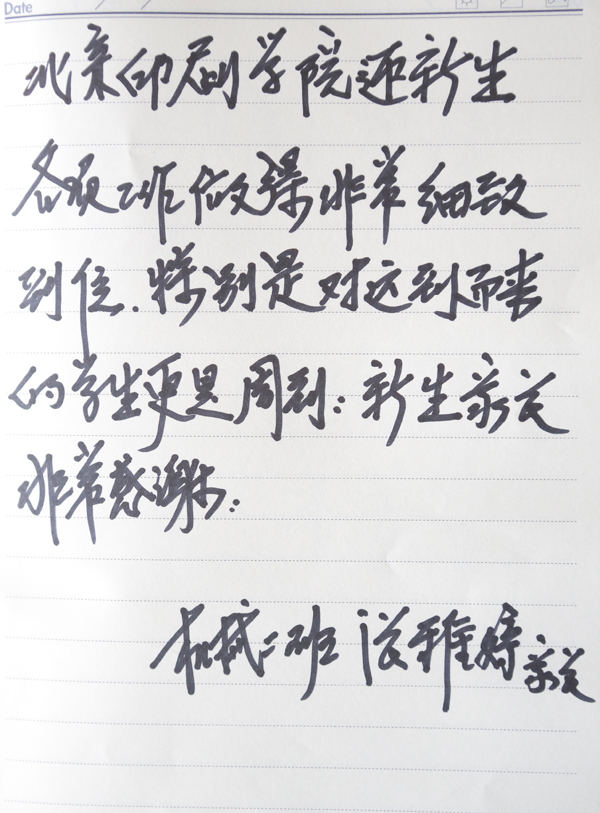 Date
北京印刷学院迎新生
各项工作做得非常细致
到位.特别是对远到而来
的学生更是周到:新生家长
非常感谢:
机械二班 雅婷家长